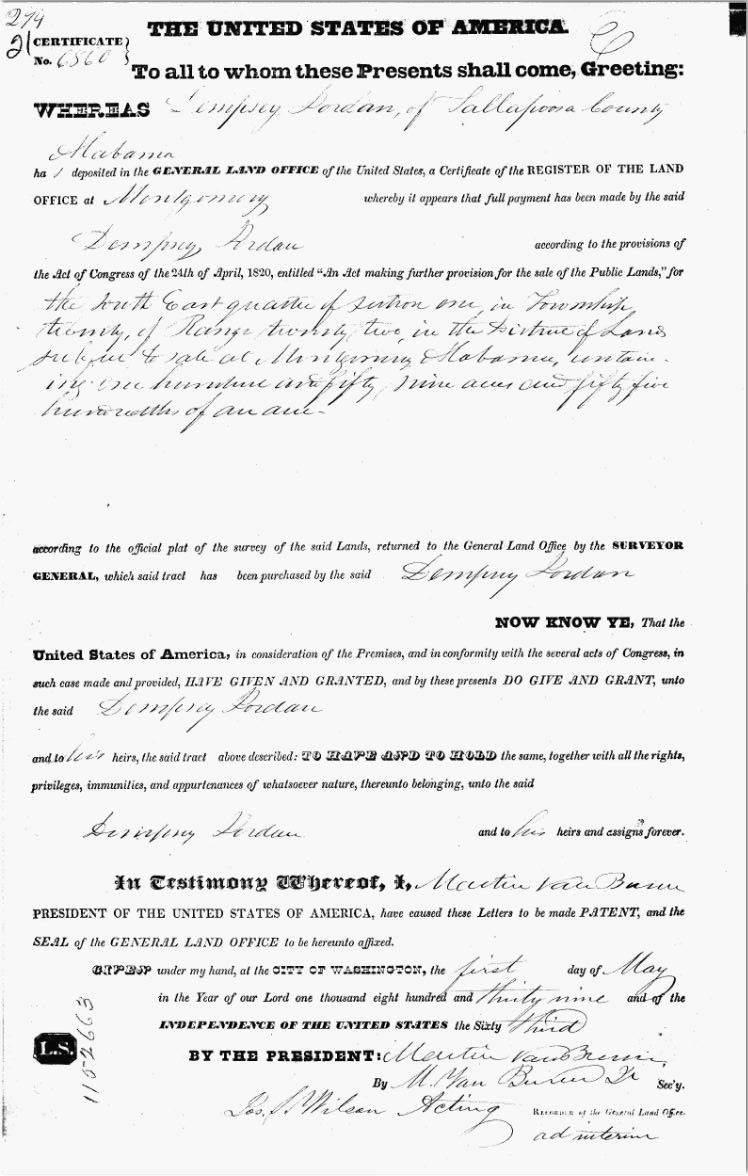 274
2 THE UNITED STATES OF AMERICA.
CERTIFICATE
No. 6560
To all to whom these Presents shall come, Greeting:
WHEREAS Dempsey Jordan, of Tallapoosa County
Alabama
ha s deposited in the GENERAL LAND OFFICE of the United States, a Certificate of the REGISTER OF THE LAND
OFFICE at Montgomery whereby it appears that full payment has been made by the said
Dempsey Jordan according to the provisions of
the Act of Congress of the 24th of April, 1820, entitled "An Act making further provision for the sale of the Public Lands," for
the South East quarter of section one, in Township
twenty, of Range twenty two, in the District of Lands
subject to sale at Montgomery Alabama, contain-
ing one hundred and fifty nine acres and fifty five
hundredths of an acre-
according to the official plat of the survey of the said Lands, returned to the General Land Office by the SURVEYOR
GENERAL, which said tract has been purchased by the said Dempsey Jordan
NOW KNOW YE, That the
United States of America, in consideration of the Premises, and in conformity with the several acts of Congress, in
such case made and provided, HAVE GIVEN AND GRANTED, and by these presents DO GIVE AND GRANT, unto
the said Dempsey Jordan
and to his heirs, the said tract above described: TO HAVE AND TO HOLD the same, together with all the rights,
privileges, immunities, and appurtenances of whatsoever nature, thereunto belonging, unto the said
Dempsey Jordan and to his heirs and assigns forever.
In Testimony Whereof, I, Martin Van Buren
PRESIDENT OF THE UNITED STATES OF AMERICA, have caused these Letters to be made PATENT, and the
SEAL of the GENERAL LAND OFFICE to be hereunto affixed.
GIVEN under my hand, at the CITY OF WASHINGTON, the first day of May
in the Year of our Lord one thousand eight hundred and thirty nine and of the
INDEPENDENCE OF THE UNITED STATES the Sixty third
L.S.
1152663
BY THE PRESIDENT: Martin Van Buren
By M. Van Buren Jr Sec'y.
Jos. S. Wilson Acting RECORDER of the General Land Office.
ad interim